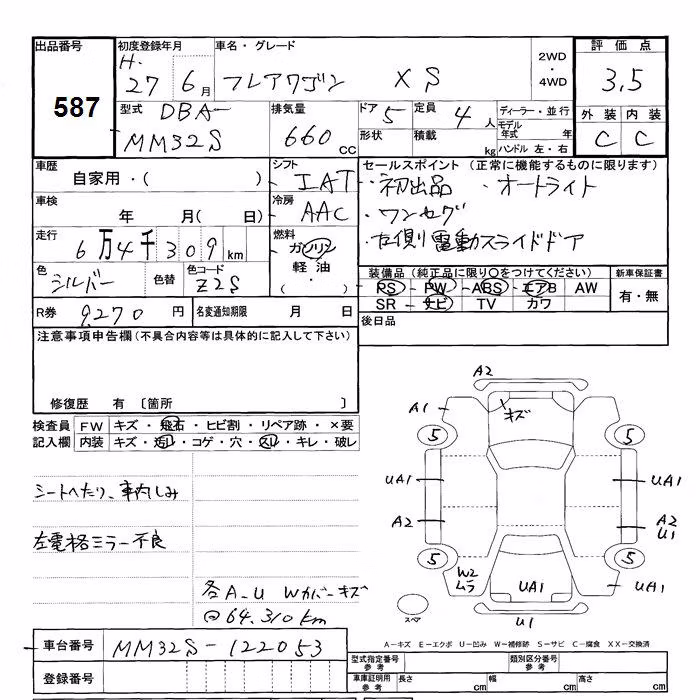 出品番号 初度登録年月 車名・グレード 2WD ・ 4WD 評価点
587
H. 27 6月 フレアワゴン XS 3.5
型式 DBA- 排気量 ドア 5 定員 4人 ディーラー・並行 外装 内装
MM32S 660 cc 形状 積載 kg モデル年式 年 C C
ハンドル 左・右
車歴 自家用・( ) シフト IAT セールスポイント (正常に機能するものに限ります)
・初出品 ・オートライト
車検 年 月(日) 冷房 AAC
・ワンセグ
走行 6万4千309km 燃料 ガソリン 軽油 ・左側電動スライドドア
色 シルバー 色替 色コード Z2S
装備品 (純正品に限り○をつけてください) 新車保証書
PS PW ABS エアB AW 有・無
SR ナビ TV カワ
R券 9,270円 名変通知期限 月 日 後日品
注意事項申告欄(不具合内容等は具体的に記入して下さい)
修復歴 有 〔箇所 〕
検査員 FW キズ・飛石・ヒビ割・リペア跡・×要
記入欄 内装 キズ・汚レ・コゲ・穴・スレ・キレ・破レ
シートへたり、車内しみ
左電格ミラー不良
各A-U Wカバーキズ
@64.310km
A2
A1 キズ
5 5
UA1 UA1
A2 A2
U1
5 5
W2
ムラ UA1 UA1
スペア U1
A-キズ E-エクボ U-凹み W-補修跡 S-サビ C-腐食 XX-交換済
車台番号 MM32S-122053
登録番号
型式指定番号 参考 類別区分番号 参考
車庫証明用 参考 長さ cm 幅 cm 高さ cm